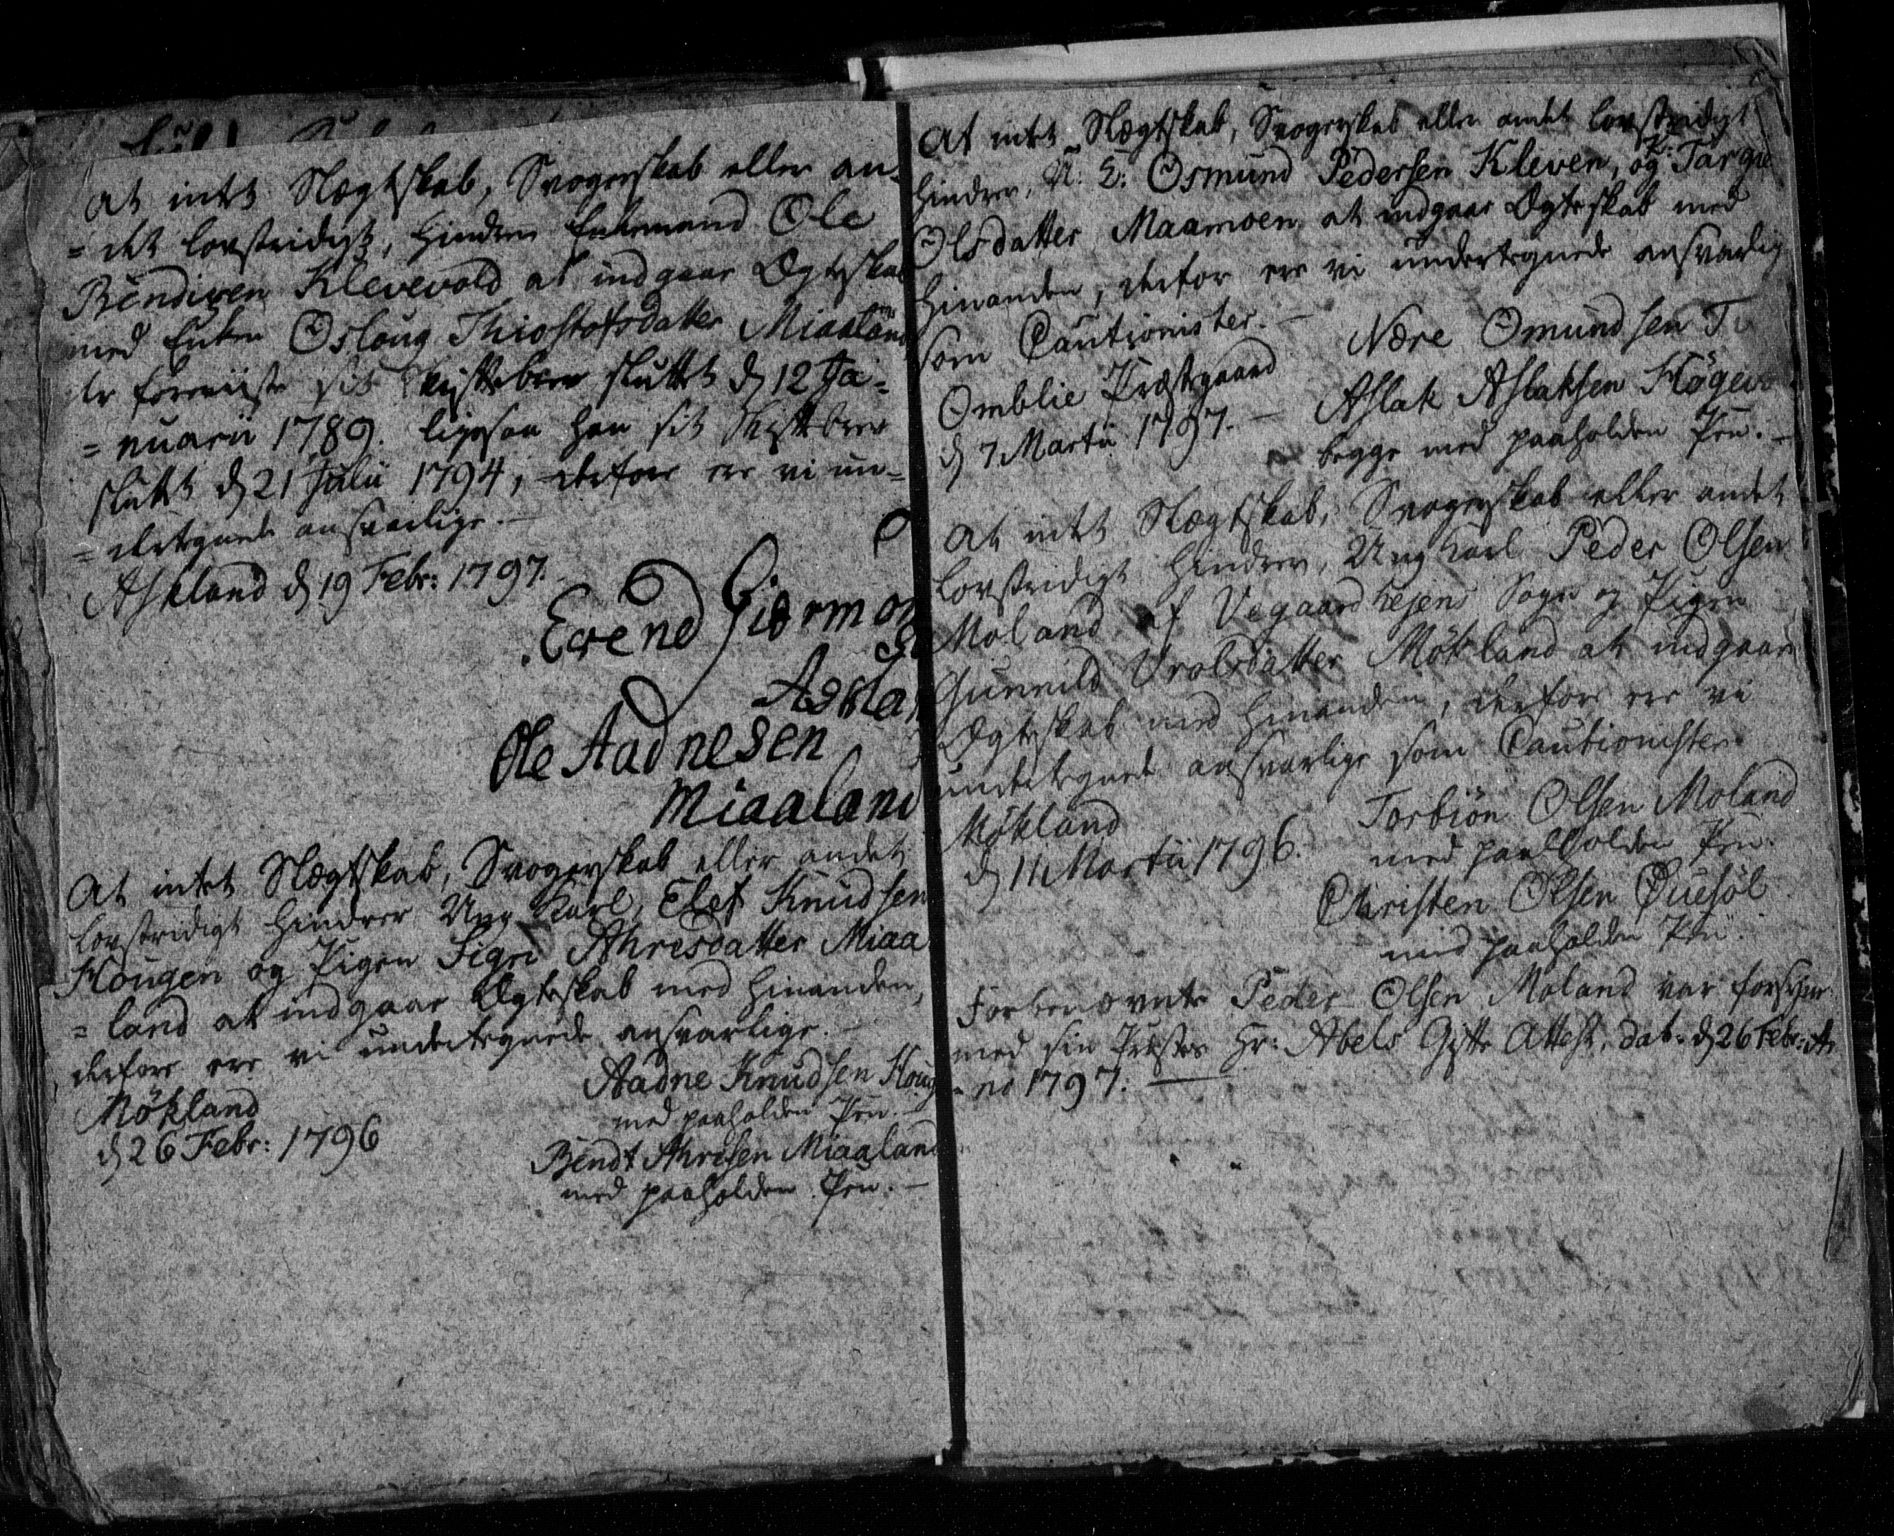 At intet Slægtskab, Svogerskab eller an-
= det lovstridigt, hindrer Enkemand Ole
Bendixen Klevevold at indgaae Ægteskab
med Enken Osloug Thiostofsdatter Miaaland
sit Skiftebrev sluttet d 12 Ja-
= nuarii 1789. ligesaa han sit Skiftebrev
sluttet d 21 Julii 1794, derfore ere vi un-
= dertegnede ansvarlige.
Askland d 19 Febr: 1797.
Evend Giermon
Askla
Ole Aadnesen
Miaaland
At intet Slægtskab, Svogerskab eller andet
lovstridigt hindrer Ung Karl, Elef Knudsen
Hougen og Pigen Sigri Ahresdatter Miaa
= land at indgaae Ægteskab med hinanden,
derfore ere vi undertegnede ansvarlige.
Aadne Knudsen Houg
Mökland med paaholden Pen.
d 26 Febr: 1796
Bendt Ahresen Miaaland
med paaholden Pen.
At intet Slægtskab, Svogerskab eller andet lovstridigt
hindrer, U: E: Osmund Pedersen Kleven, og P: Targie
Olsdatter Maamoen at indgaae Ægteskab med
hinanden, derfor ere vi undertegnede ansvarlig
som Cautionister.
Omblie Præstgaard Nære Omundsen
d 7 Martii 1797. Aslak Aslaksen Högevo
begge med paaholden Pen.
At intet Slægtskab, Svogerskab eller andet
lovstridigt hindrer, Ung Karl Peder Olsen
Moland af Vegaardhejens Sogn og Pigen
Gunnild Vrolsdatter Mökland at indgaae
Ægteskab med hinanden, derfore ere vi
undertegnede ansvarlige som Cautionister
Mökland Torbiön Olsen Moland
d 11 Martii 1796. med paaholden Pen.
Christen Olsen Öuesöl
med paaholden Pen.
Forbenævnte Peder Olsen Moland var forsynet
med sin Præstes Hr: Abels Gifte Attest, dat: d 26 Febr: A
= no 1797.